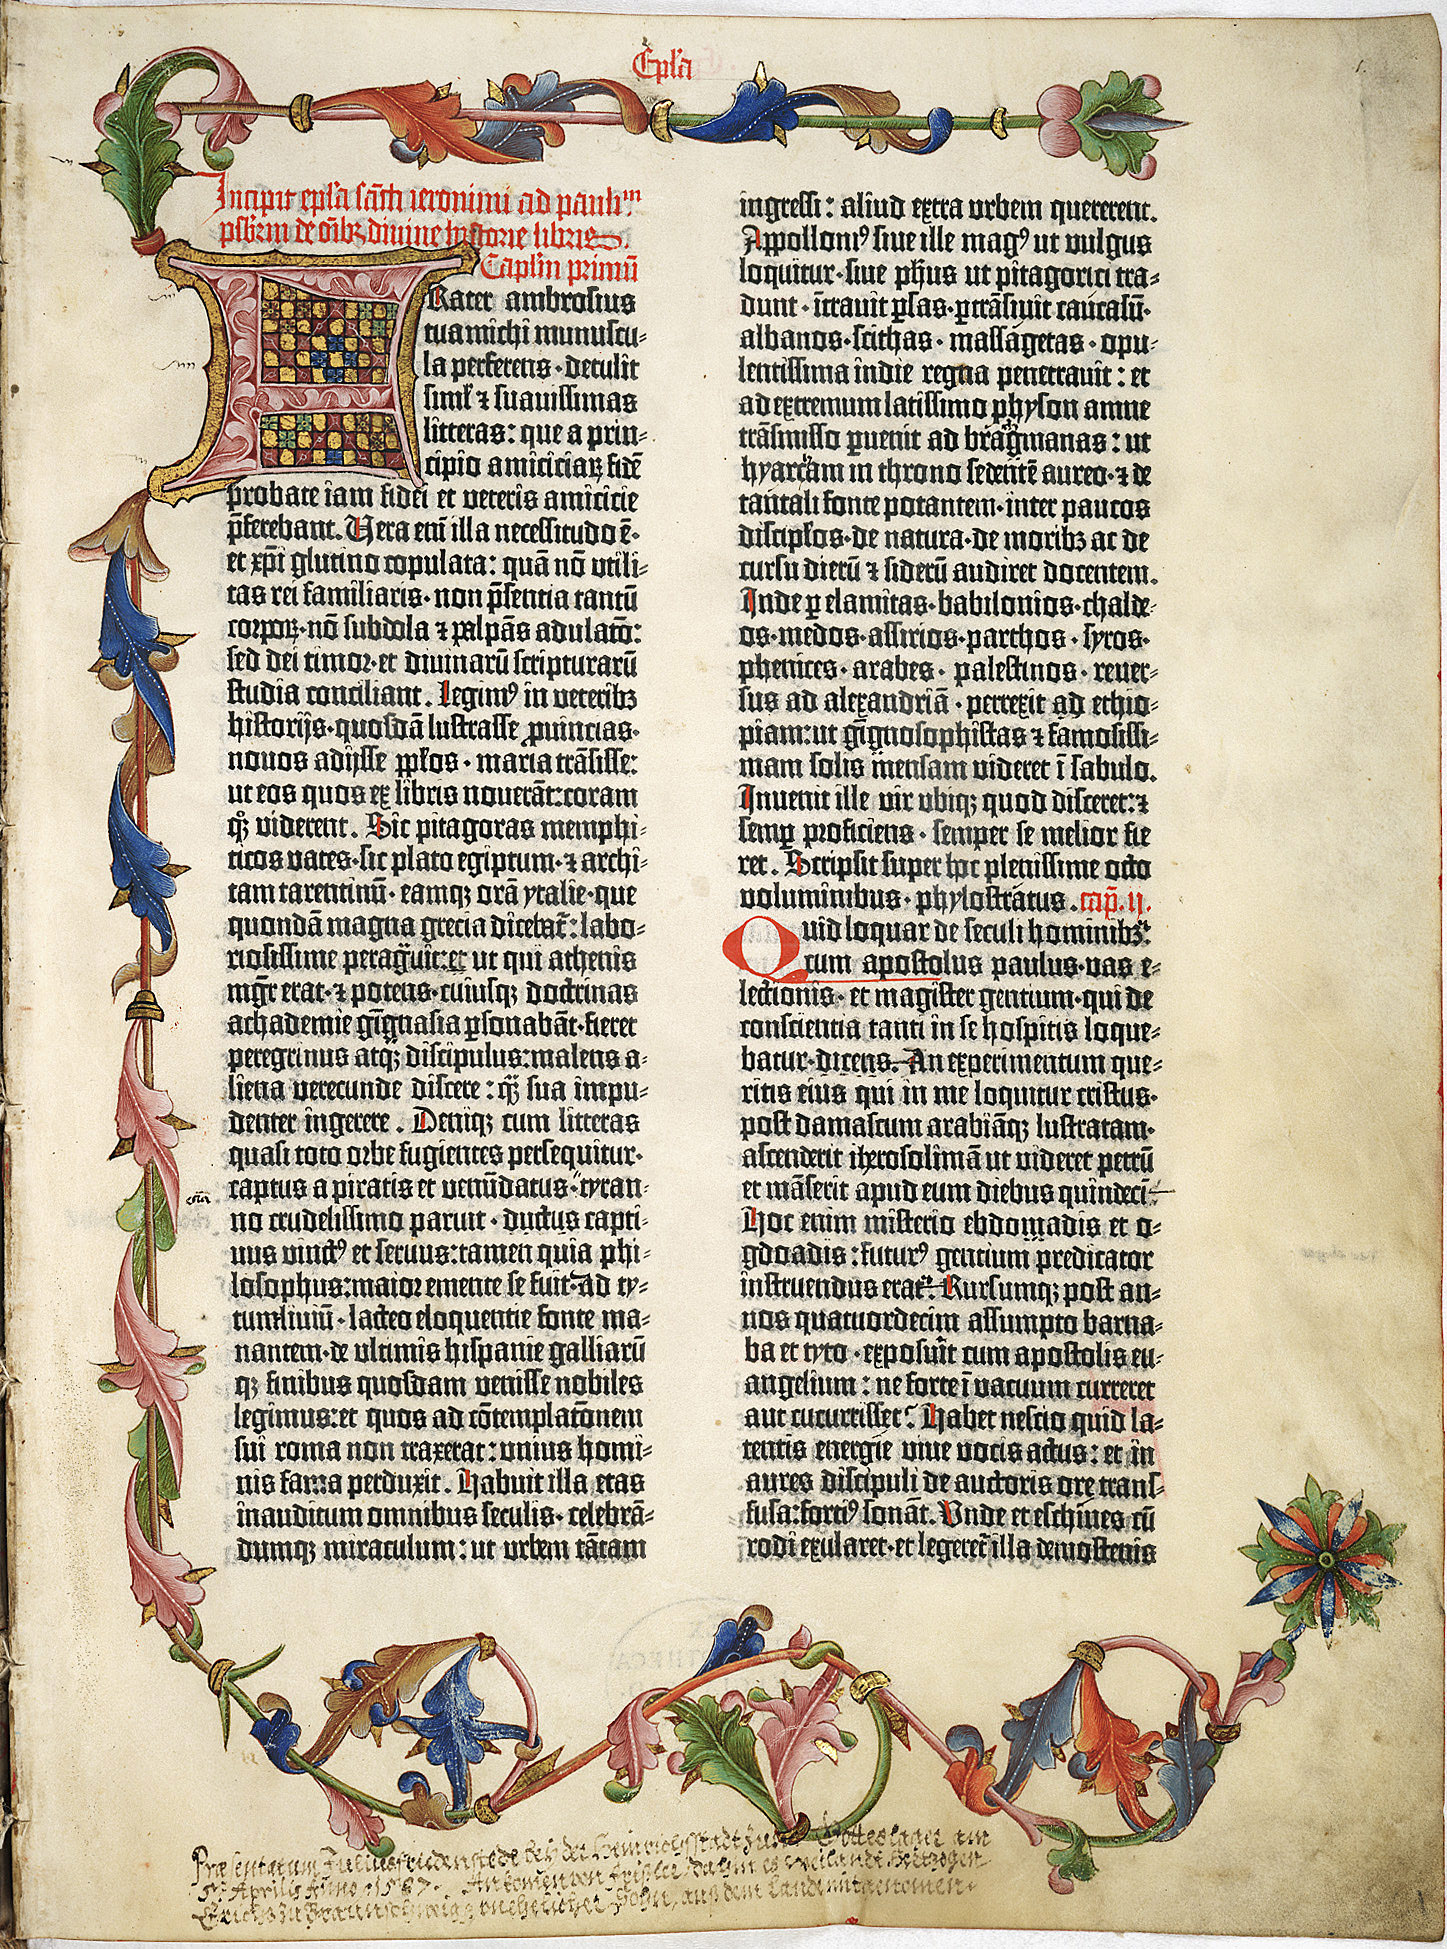 Epl'a
Incipit epl'a sācti ieronimi ad paulinū
psb'rm de oīb3 divine historie libris.
Capl'm primū
Frater ambrosius
tua michi munuscu-
la perferens · detulit
siml' ⁊ suavissimas
litteras : que a prin-
cipio amiciciaꝝ fidē
probate iam fidei et veteris amicicie
p̄ferebant. Vera em̄ illa necessitudo ē ·
et xp̄i glutino copulata : quā nō utili-
tas rei familiaris · non p̄sentia tantū
corpoꝝ · nō subdola ⁊ palpās adulatō :
sed dei timor · et divinarū scripturarū
studia conciliant. Legimꝰ in veterib3
historijs · quosdā lustrasse ꝓvincias ·
novos adijsse pp̄los · maria trāsisse :
ut eos quos ex libris noverāt : coram
qꝫ viderent. Sic pitagoras memphi-
ticos vates · sic plato egiptum · ⁊ archi-
tam tarentinū · eamqꝫ orā ytalie · que
quondā magna grecia dicebat̄ : labo-
riosissime peragravit : et ut qui athenis
mgr̄ erat · ⁊ potens · cuiusqꝫ doctrinas
achademie gignasia ꝑsonabāt · fieret
peregrinus atqꝫ discipulus : malens a-
liena verecunde discere : qꝫ̄ sua impu-
denter ingerere. Deniqꝫ cum litteras
quasi toto orbe fugientes persequitur ·
captus a piratis et venūdatus · tyran-
no crudelissimo paruit · ductus capti-
vus vinctꝰ et servus : tamen quia phi-
losophus : maior emente se fuit · Ad ty-
tumliviū · lacteo eloquentie fonte ma-
nantem · de ultimis hispanie galliarū
qꝫ finibus quosdam venisse nobiles
legimus : et quos ad cōtemplatōnem
sui roma non traxerat : unius homi-
nis fama perduxit. Habuit illa etas
inauditum omnibus seculis · celebrā-
dumqꝫ miraculum : ut urbem tātam
ingressi : aliud extra urbem quererent.
Appolloniꝰ sive ille magꝰ ut vulgus
loquitur · sive ph̄us ut pitagorici tra-
dunt · ītravit ꝑsas · ꝑtrāsivit caucasū ·
albanos · scithas · massagetas · opu-
lentissima indie regna penetravit : et
ad extremum latissimo physon amne
trāsmisso ꝑvenit ad bragmanas : ut
hyarcam in throno sedentē aureo · ⁊ de
tantali fonte potantem · inter paucos
discipl'os · de natura · de morib3 ac de
cursu dierū ⁊ siderū audiret docentem.
Inde ꝑ elamitas · babilonios · chalde-
os · medos · assirios · parthos · syros ·
phenices · arabes · palestinos · rever-
sus ad alexandriā · perrexit ad ethio-
piam : ut gignosophistas ⁊ famosissi-
mam solis mensam videret ī sabulo.
Invenit ille vir ubiqꝫ quod disceret : ⁊
semꝑ proficiens · semper se melior fie
ret. Scripsit super hoc plenissime octo
voluminibus · phylostratus. cap̄. ij.
Quid loquar de seculi hominib3 :
cum apostolus paulus · vas e-
lectionis · et magister gentium · qui de
conscientia tanti in se hospitis loque-
batur · dicens. An experimentum que-
ritis eius qui in me loquitur cristus ·
post damascum arabiāqꝫ lustratam ·
ascenderit iherosolimā ut videret petrū
et māserit apud eum diebus quindeci-
Hoc enim misterio ebdomadis et o-
gdoadis : futurꝰ gentium predicator
instruendus erat. Rursumqꝫ post an-
nos quatuordecim assumpto barna-
ba et tyto · exposuit cum apostolis eu-
angelium : ne forte ī vacuum curreret
aut cucurrisset. Habet nescio quid la-
tentis energie vive vocis actus : et in
aures discipuli de auctoris ore trans-
fusa : fortiꝰ sonāt. Unde et eschines cū
rodi exularet · et legeret̄ illa demostenis
Præsentatum Julius fridenstede bey der Heinrichsstadt zum Gotteslager am
5. Aprilis Anno 1587.